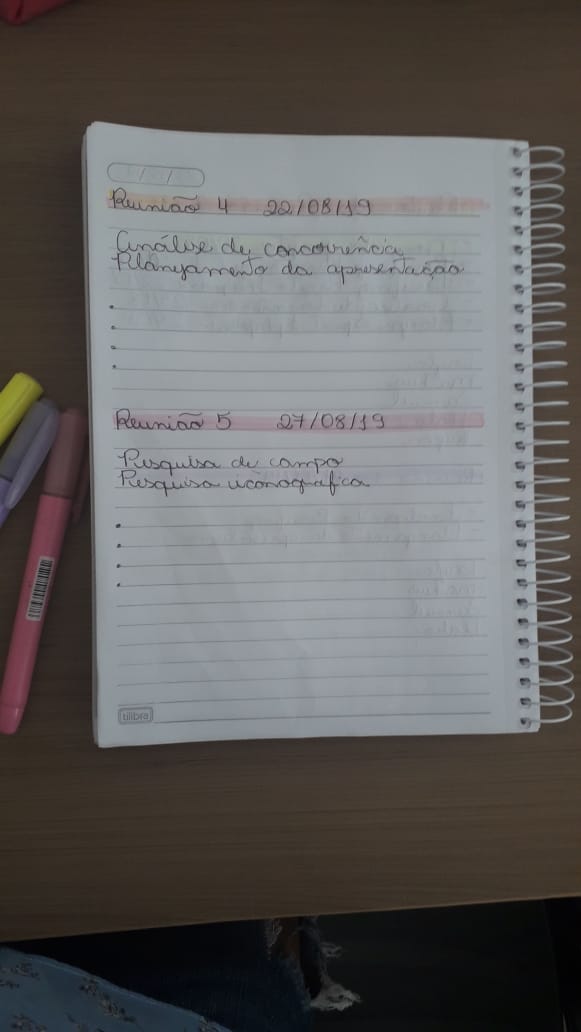 Reunião 4 22/08/19
Análise de concorrência
Planejamento da apresentação
Reunião 5 27/08/19
Pesquisa de campo
Pesquisa iconográfica
tilibra